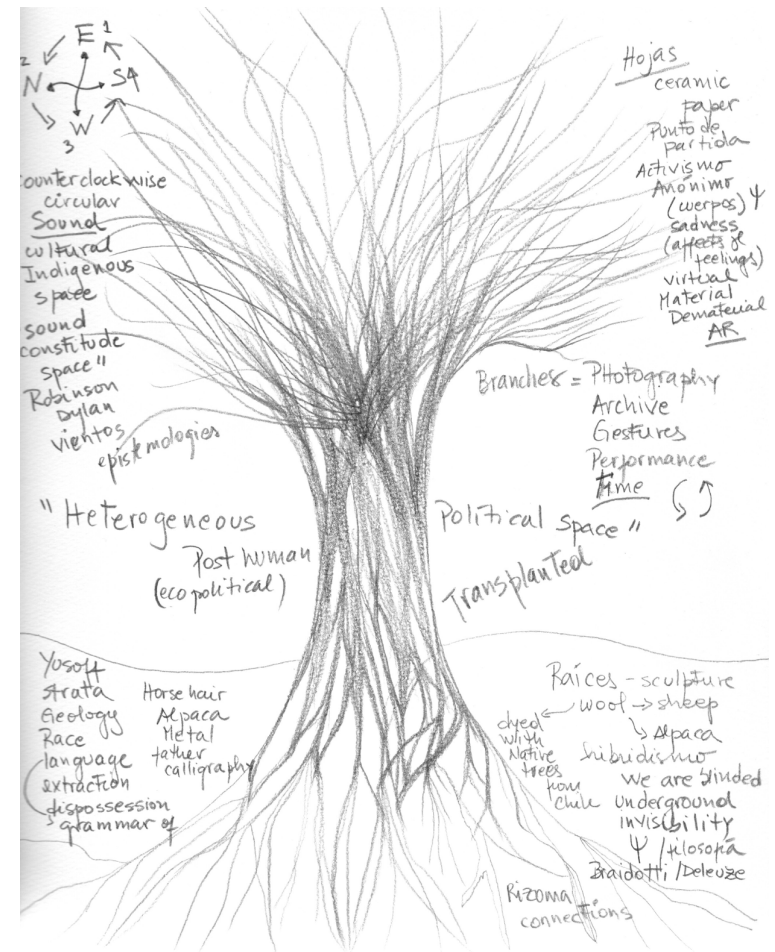 E 1
2
N
S4
W
3
ounterclockwise
circular
Sound
cultural
Indigenous
space
sound
constitude
space"
Robinson
Dylan
vientos
epistemologies
Hojas
ceramic
paper
Punto de
partida
Activismo
Anónimo
(cuerpos) Ψ
sadness
(affects &
feelings)
virtual
Material
Dematerial
AR
Branches = PHotography
Archive
Gestures
Performance
Time
"Heterogeneous
Political space"
Post human
(eco political)
Transplanted
Yusoff
strata
Geology
Race
language
extraction
dispossession
grammar of
Horse hair
Alpaca
Metal
father
calligraphy
Raíces - sculpture
wool → sheep
Alpaca
dyed
with
Native
trees
from
Chile
hibidismo
we are blinded
underground
invisibility
Ψ / filosofía
Braidotti / Deleuze
Rizoma
connections